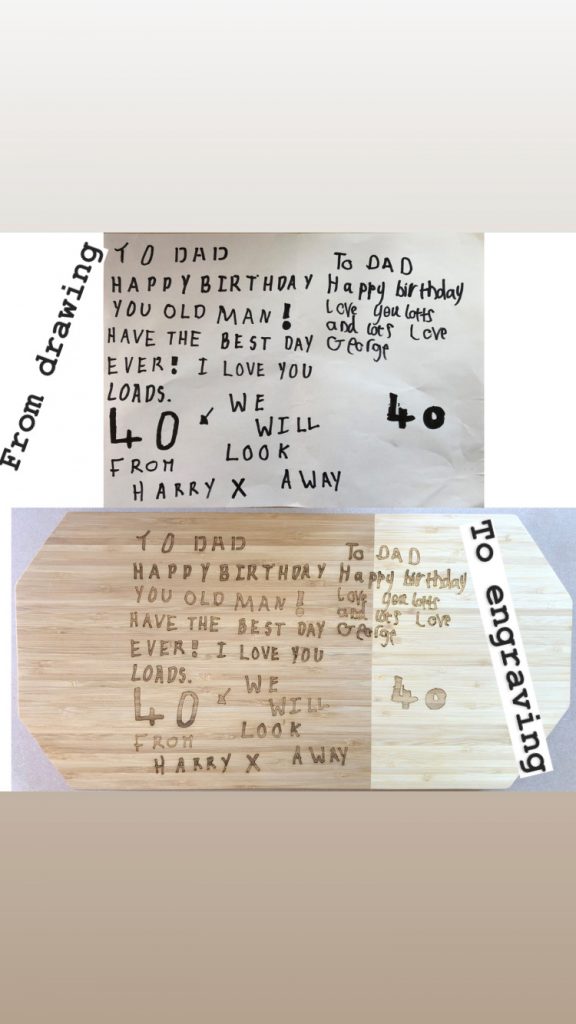 From drawing
TO DAD
HAPPY BIRTHDAY
YOU OLD MAN!
HAVE THE BEST DAY
EVER! I LOVE YOU
LOADS.
40 ↙ WE
WILL
LOOK
AWAY
FROM
HARRY X
To DAD
Happy birthday
Love you lotts
and lots Love
George
40
To engraving
TO DAD
HAPPY BIRTHDAY
YOU OLD MAN!
HAVE THE BEST DAY
EVER! I LOVE YOU
LOADS.
40 ↙ WE
WILL
LOOK
AWAY
FROM
HARRY X
To DAD
Happy birthday
Love you lotts
and lots Love
George
40